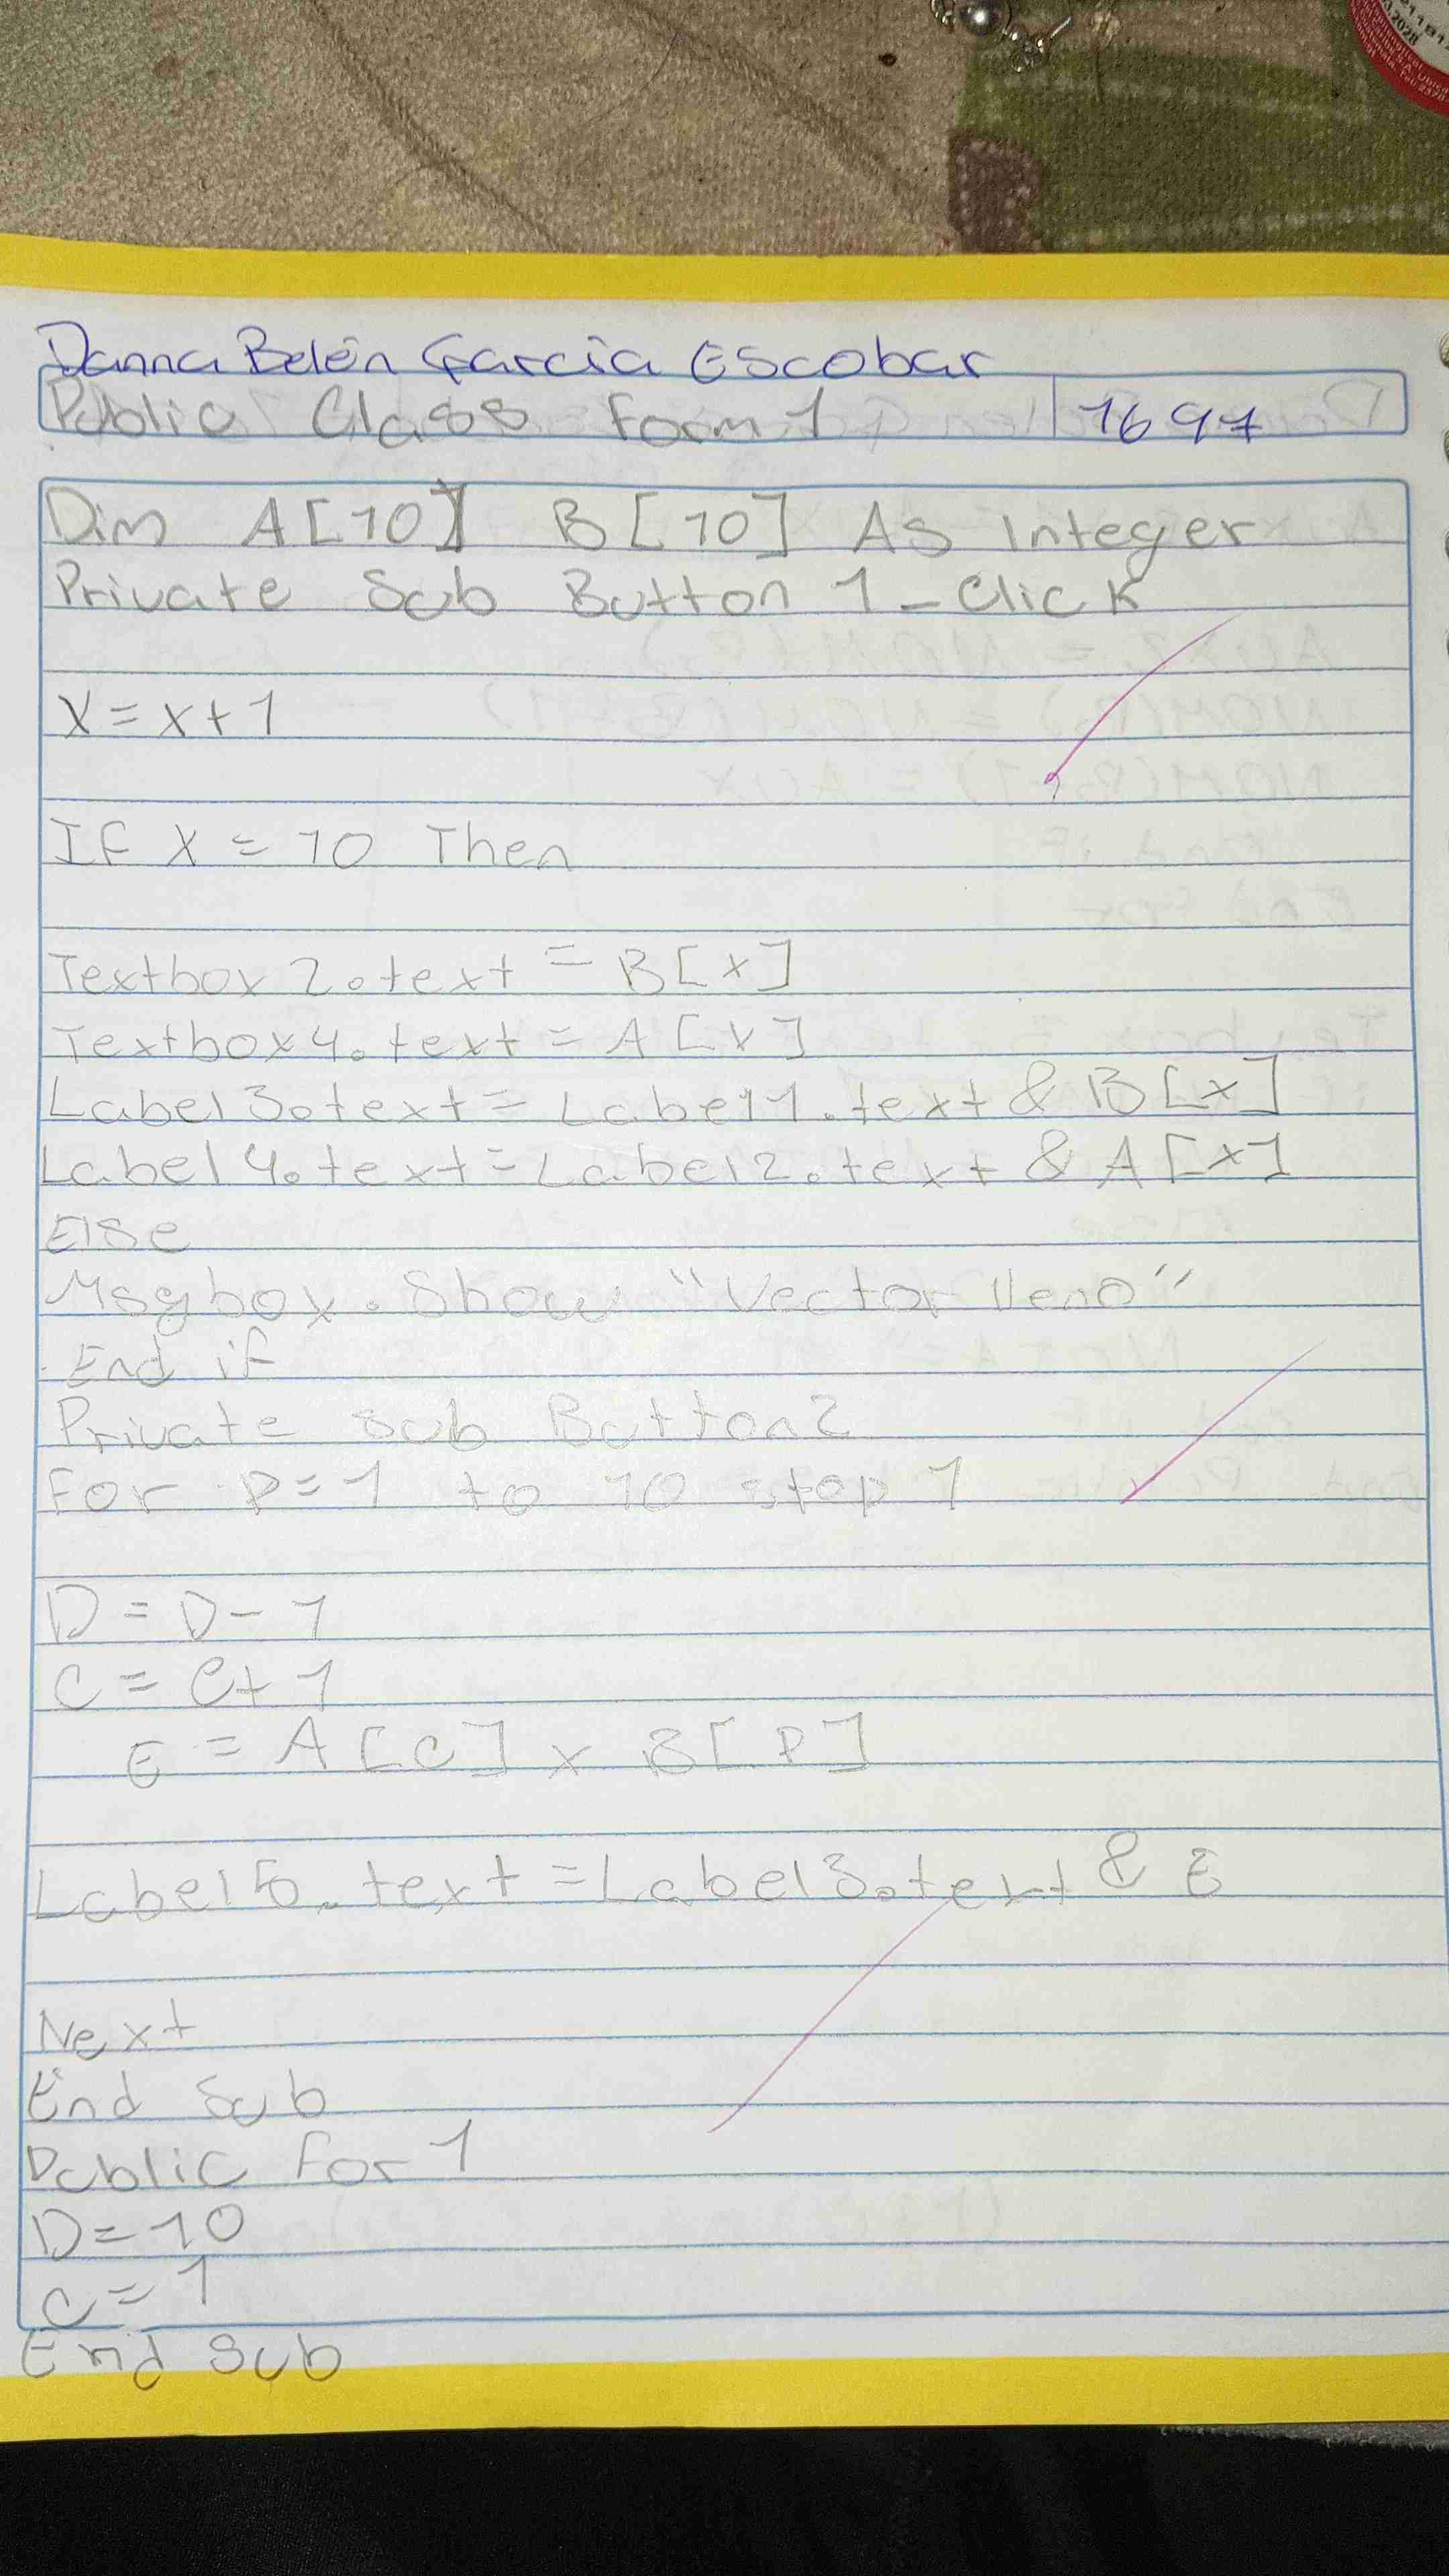 Danna Belén García Escobar
Public Class Form 1 1697
Dim A[10] B[10] As Integer
Private Sub Button 1_Click
X=x+1
If X = 10 Then
Textbox 2.text = B[x]
Textbox 4.text = A[x]
Label 3.text = Label 1.text & B[x]
Label 4.text = Label 2.text & A[x]
Else
Msgbox.Show "Vector lleno"
End if
Private sub Button2
For P=1 to 10 step 1
D = D-1
C = C+1
E = A[C] x B[P]
Label 5.text = Label 3.text & E
Next
End Sub
Public For 1
D=10
C=1
End Sub